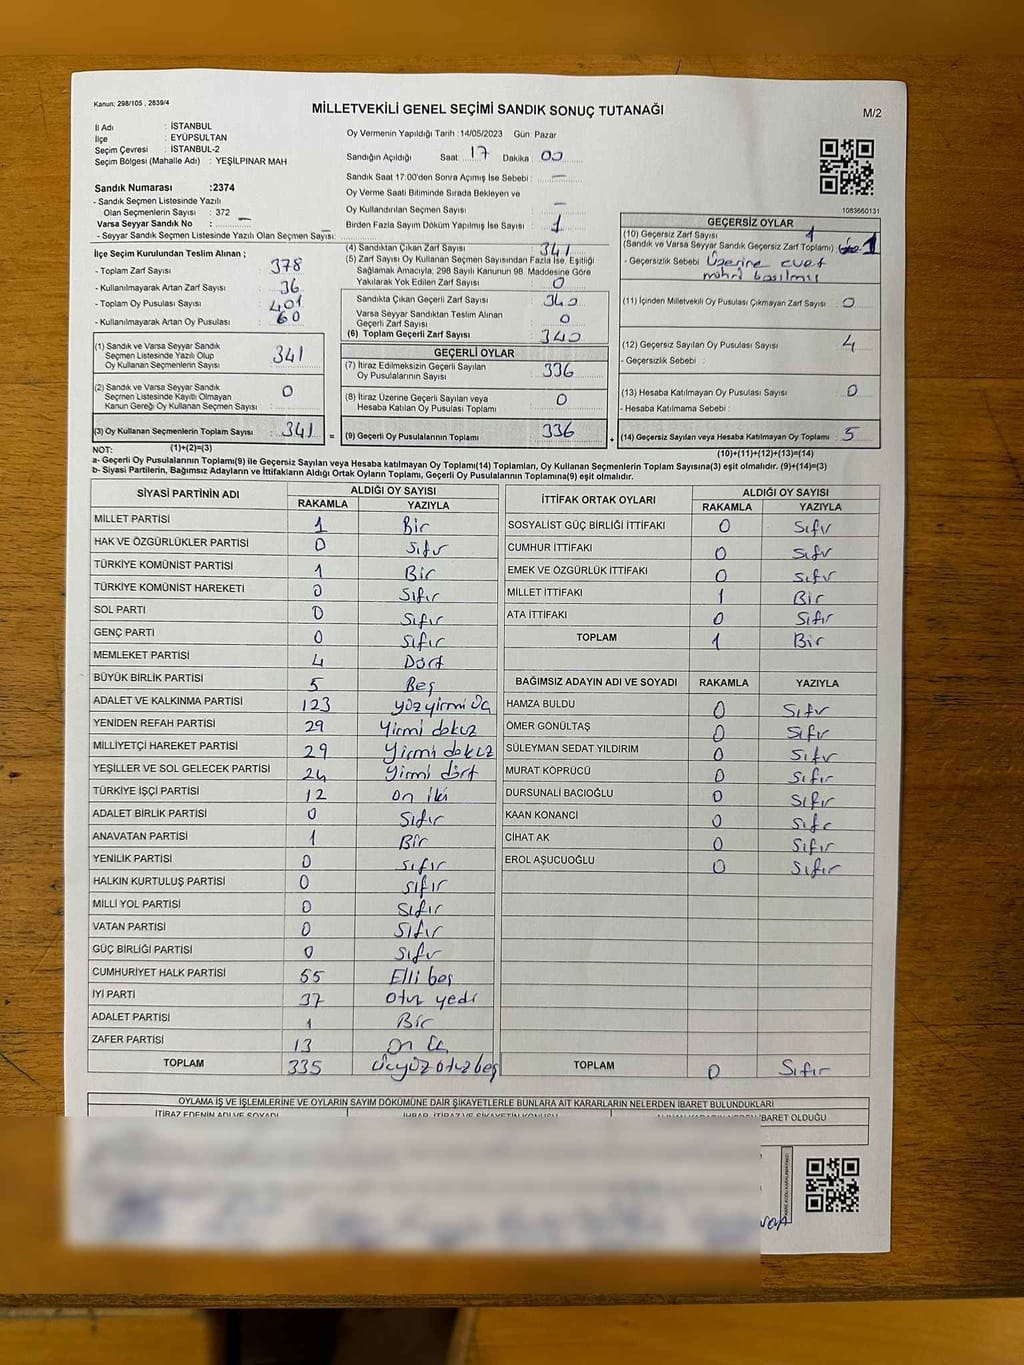 Kanun; 298/105 , 2839/4
MİLLETVEKİLİ GENEL SEÇİMİ SANDIK SONUÇ TUTANAĞI
M/2
İl Adı : İSTANBUL
İlçe : EYÜPSULTAN
Seçim Çevresi : İSTANBUL-2
Seçim Bölgesi (Mahalle Adı) : YEŞİLPINAR MAH
Sandık Numarası :2374
- Sandık Seçmen Listesinde Yazılı
Olan Seçmenlerin Sayısı : 372
Varsa Seyyar Sandık No : —
- Seyyar Sandık Seçmen Listesinde Yazılı Olan Seçmen Sayısı: —
Oy Vermenin Yapıldığı Tarih :14/05/2023 Gün: Pazar
Sandığın Açıldığı Saat: 17 Dakika: 00
Sandık Saat 17:00'den Sonra Açımış İse Sebebi : —
Oy Verme Saati Bitiminde Sırada Bekleyen ve
Oy Kullandırılan Seçmen Sayısı : —
Birden Fazla Sayım Döküm Yapılmış İse Sayısı : 1
1083660131
İlçe Seçim Kurulundan Teslim Alınan ;
- Toplam Zarf Sayısı : 378
- Kullanılmayarak Artan Zarf Sayısı : 36
- Toplam Oy Pusulası Sayısı : 401
- Kullanılmayarak Artan Oy Pusulası : 60
(1) Sandık ve Varsa Seyyar Sandık
Seçmen Listesinde Yazılı Olup
Oy Kullanan Seçmenlerin Sayısı : 341
(2) Sandık ve Varsa Seyyar Sandık
Seçmen Listesinde Kayıtlı Olmayan
Kanun Gereği Oy Kullanan Seçmen Sayısı : 0
(3) Oy Kullanan Seçmenlerin Toplam Sayısı : 341
(4) Sandıktan Çıkan Zarf Sayısı : 341
(5) Zarf Sayısı Oy Kullanan Seçmen Sayısından Fazla İse, Eşitliği
Sağlamak Amacıyla; 298 Sayılı Kanunun 98. Maddesine Göre
Yakılarak Yok Edilen Zarf Sayısı : 0
Sandıkta Çıkan Geçerli Zarf Sayısı : 340
Varsa Seyyar Sandıktan Teslim Alınan
Geçerli Zarf Sayısı : 0
(6) Toplam Geçerli Zarf Sayısı : 340
GEÇERLİ OYLAR
(7) İtiraz Edilmeksizin Geçerli Sayılan
Oy Pusulalarının Sayısı : 336
(8) İtiraz Üzerine Geçerli Sayılan veya
Hesaba Katılan Oy Pusulası Toplamı : 0
= (9) Geçerli Oy Pusulalarının Toplamı : 336
GEÇERSİZ OYLAR
(10) Geçersiz Zarf Sayısı 1
(Sandık ve Varsa Seyyar Sandık Geçersiz Zarf Toplamı) : 1
- Geçersizlik Sebebi : Üzerine evet
mührü basılmış
(11) İçinden Milletvekili Oy Pusulası Çıkmayan Zarf Sayısı : 0
(12) Geçersiz Sayılan Oy Pusulası Sayısı : 4
- Geçersizlik Sebebi :
(13) Hesaba Katılmayan Oy Pusulası Sayısı : 0
- Hesaba Katılmama Sebebi :
+ (14) Geçersiz Sayılan veya Hesaba Katılmayan Oy Toplamı : 5
NOT: (1)+(2)=(3)
(10)+(11)+(12)+(13)=(14)
a- Geçerli Oy Pusulalarının Toplamı(9) ile Geçersiz Sayılan veya Hesaba katılmayan Oy Toplamı(14) Toplamları, Oy Kullanan Seçmenlerin Toplam Sayısına(3) eşit olmalıdır. (9)+(14)=(3)
b- Siyasi Partilerin, Bağımsız Adayların ve İttifakların Aldığı Ortak Oyların Toplamı, Geçerli Oy Pusulalarının Toplamına(9) eşit olmalıdır.
SİYASİ PARTİNİN ADI ALDIĞI OY SAYISI
RAKAMLA YAZIYLA
MİLLET PARTİSİ 1 Bir
HAK VE ÖZGÜRLÜKLER PARTİSİ 0 Sıfır
TÜRKİYE KOMÜNİST PARTİSİ 1 Bir
TÜRKİYE KOMÜNİST HAREKETİ 0 Sıfır
SOL PARTİ 0 Sıfır
GENÇ PARTİ 0 Sıfır
MEMLEKET PARTİSİ 4 Dört
BÜYÜK BİRLİK PARTİSİ 5 Beş
ADALET VE KALKINMA PARTİSİ 123 Yüzyirmi üç
YENİDEN REFAH PARTİSİ 29 Yirmi dokuz
MİLLİYETÇİ HAREKET PARTİSİ 29 Yirmi dokuz
YEŞİLLER VE SOL GELECEK PARTİSİ 24 Yirmi dört
TÜRKİYE İŞÇİ PARTİSİ 12 On iki
ADALET BİRLİK PARTİSİ 0 Sıfır
ANAVATAN PARTİSİ 1 Bir
YENİLİK PARTİSİ 0 Sıfır
HALKIN KURTULUŞ PARTİSİ 0 Sıfır
MİLLİ YOL PARTİSİ 0 Sıfır
VATAN PARTİSİ 0 Sıfır
GÜÇ BİRLİĞİ PARTİSİ 0 Sıfır
CUMHURİYET HALK PARTİSİ 55 Elli beş
İYİ PARTİ 37 Otuz yedi
ADALET PARTİSİ 1 Bir
ZAFER PARTİSİ 13 On üç
TOPLAM 335 Üçyüzotuzbeş
İTTİFAK ORTAK OYLARI ALDIĞI OY SAYISI
RAKAMLA YAZIYLA
SOSYALİST GÜÇ BİRLİĞİ İTTİFAKI 0 Sıfır
CUMHUR İTTİFAKI 0 Sıfır
EMEK VE ÖZGÜRLÜK İTTİFAKI 0 Sıfır
MİLLET İTTİFAKI 1 Bir
ATA İTTİFAKI 0 Sıfır
TOPLAM 1 Bir
BAĞIMSIZ ADAYIN ADI VE SOYADI RAKAMLA YAZIYLA
HAMZA BULDU 0 Sıfır
ÖMER GÖNÜLTAŞ 0 Sıfır
SÜLEYMAN SEDAT YILDIRIM 0 Sıfır
MURAT KÖPRÜCÜ 0 Sıfır
DURSUNALİ BACIOĞLU 0 Sıfır
KAAN KONANCİ 0 Sıfır
CİHAT AK 0 Sıfır
EROL AŞUCUOĞLU 0 Sıfır
TOPLAM 0 Sıfır
OYLAMA İŞ VE İŞLEMLERİNE VE OYLARIN SAYIM DÖKÜMÜNE DAİR ŞİKAYETLERLE BUNLARA AİT KARARLARIN NELERDEN İBARET BULUNDUKLARI
İTİRAZ EDENİN ADI VE SOYADI İHBAR, İTİRAZ VE ŞİKAYETİN KONUSU İBARET OLDUĞU